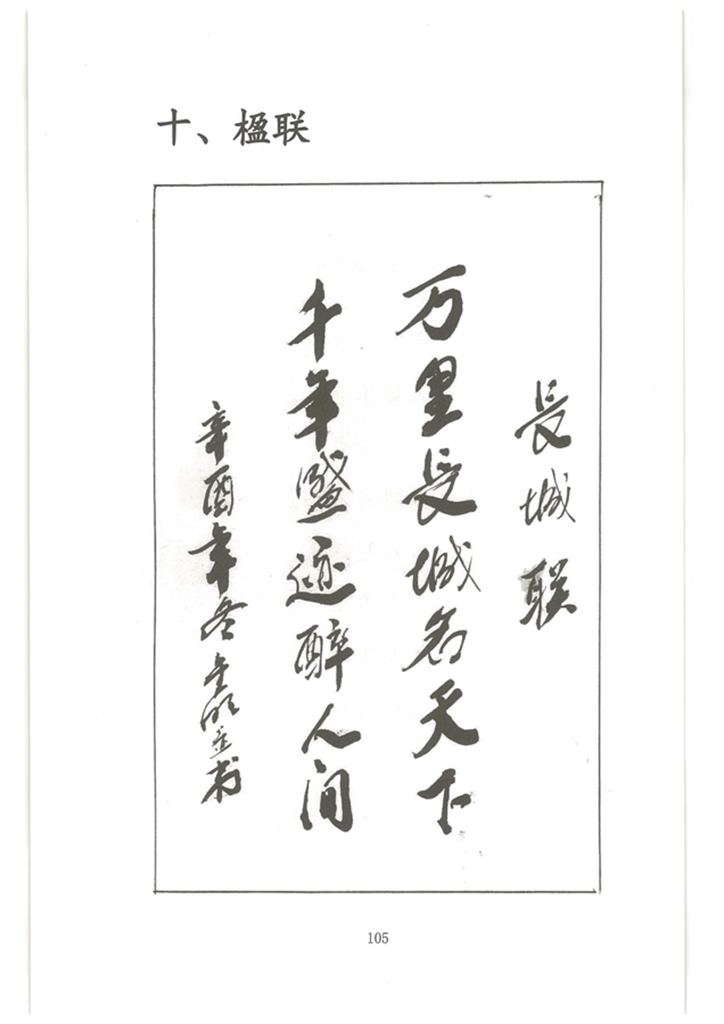 十、楹联
長城联
万里長城名天下
千年盛迹醉人间
辛酉年冬
105